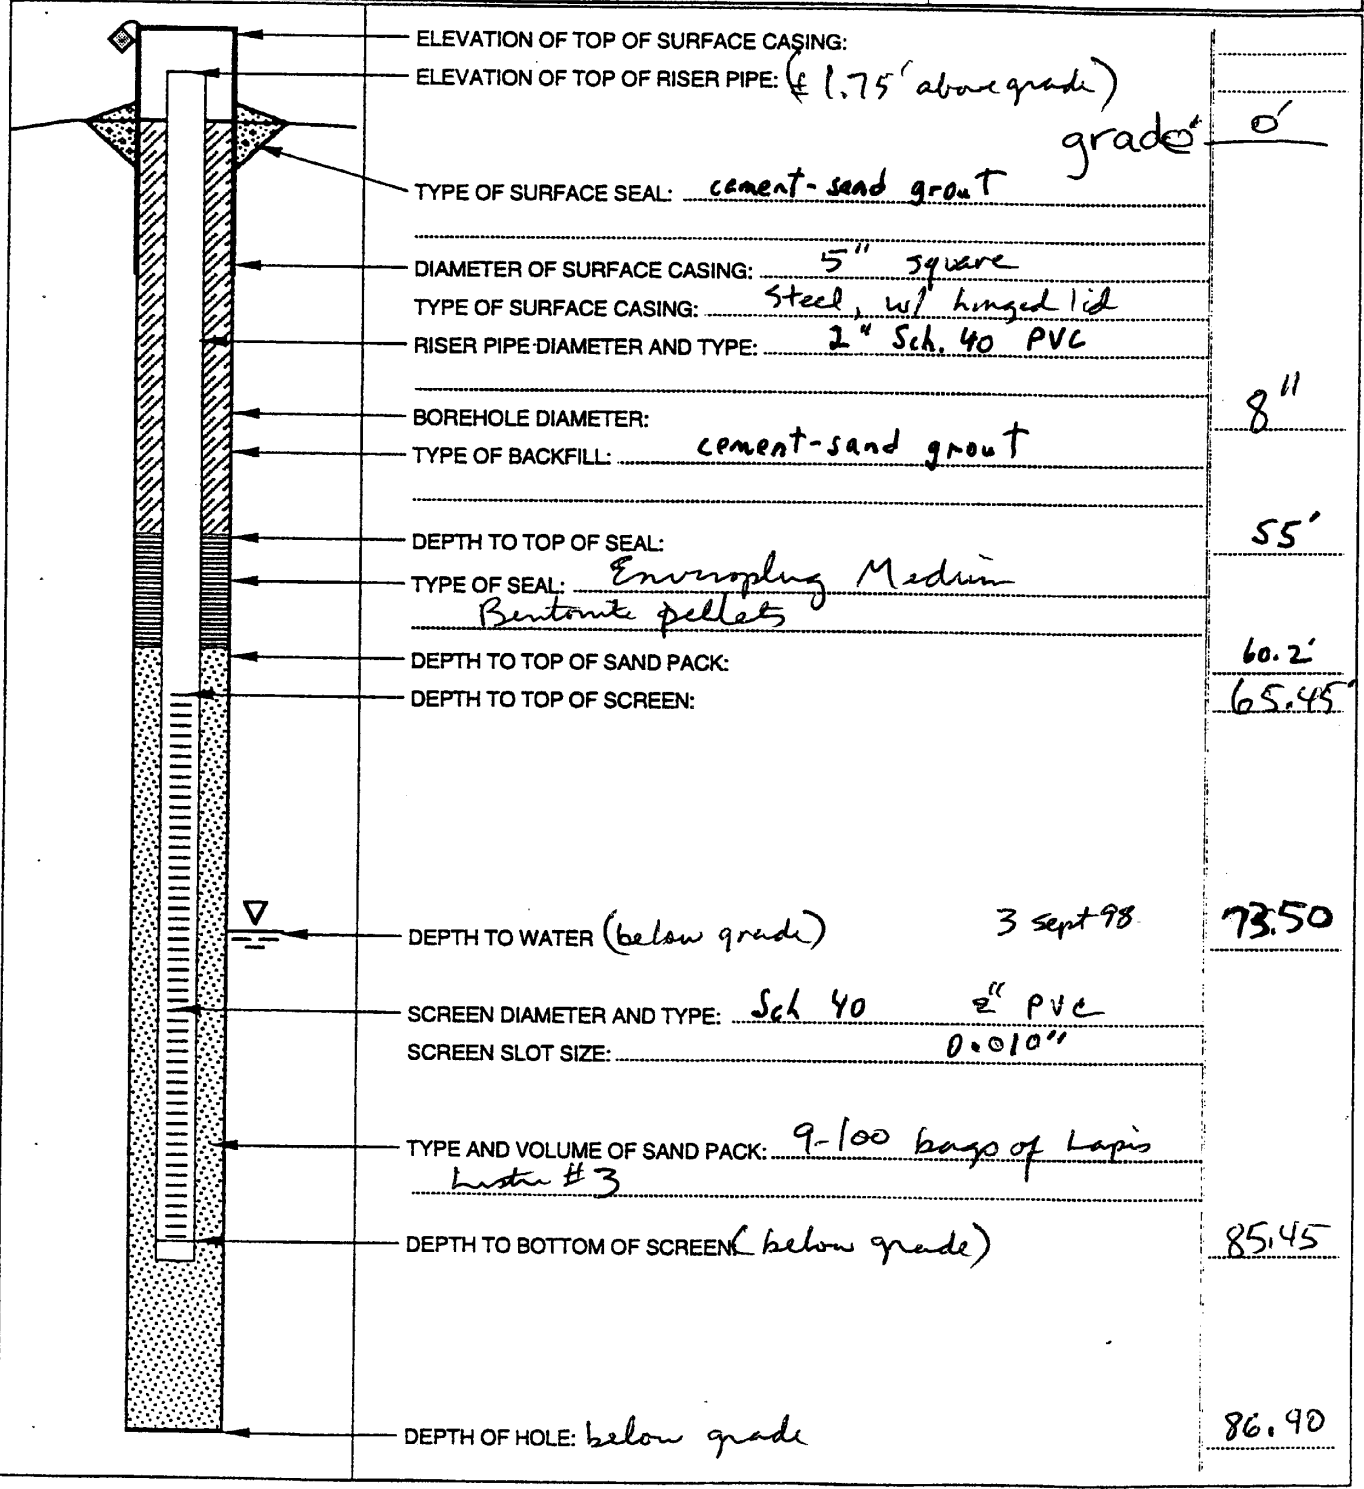 ELEVATION OF TOP OF SURFACE CASING:
ELEVATION OF TOP OF RISER PIPE: (± 1.75' above grade)
grade 0'
TYPE OF SURFACE SEAL: cement-sand grout
DIAMETER OF SURFACE CASING: 5" square
TYPE OF SURFACE CASING: Steel, w/ hinged lid
RISER PIPE DIAMETER AND TYPE: 2" Sch. 40 PVC
BOREHOLE DIAMETER: 8"
TYPE OF BACKFILL: cement-sand grout
DEPTH TO TOP OF SEAL: 55'
TYPE OF SEAL: Enviroplug Medium
Bentonite pellets
DEPTH TO TOP OF SAND PACK: 60.2'
DEPTH TO TOP OF SCREEN: 65.45'
DEPTH TO WATER (below grade) 3 Sept 98 73.50
SCREEN DIAMETER AND TYPE: Sch 40 2" PVC
SCREEN SLOT SIZE: 0.010"
TYPE AND VOLUME OF SAND PACK: 9-100 bags of Lapis
Lustre #3
DEPTH TO BOTTOM OF SCREEN (below grade) 85.45
DEPTH OF HOLE: below grade 86.90